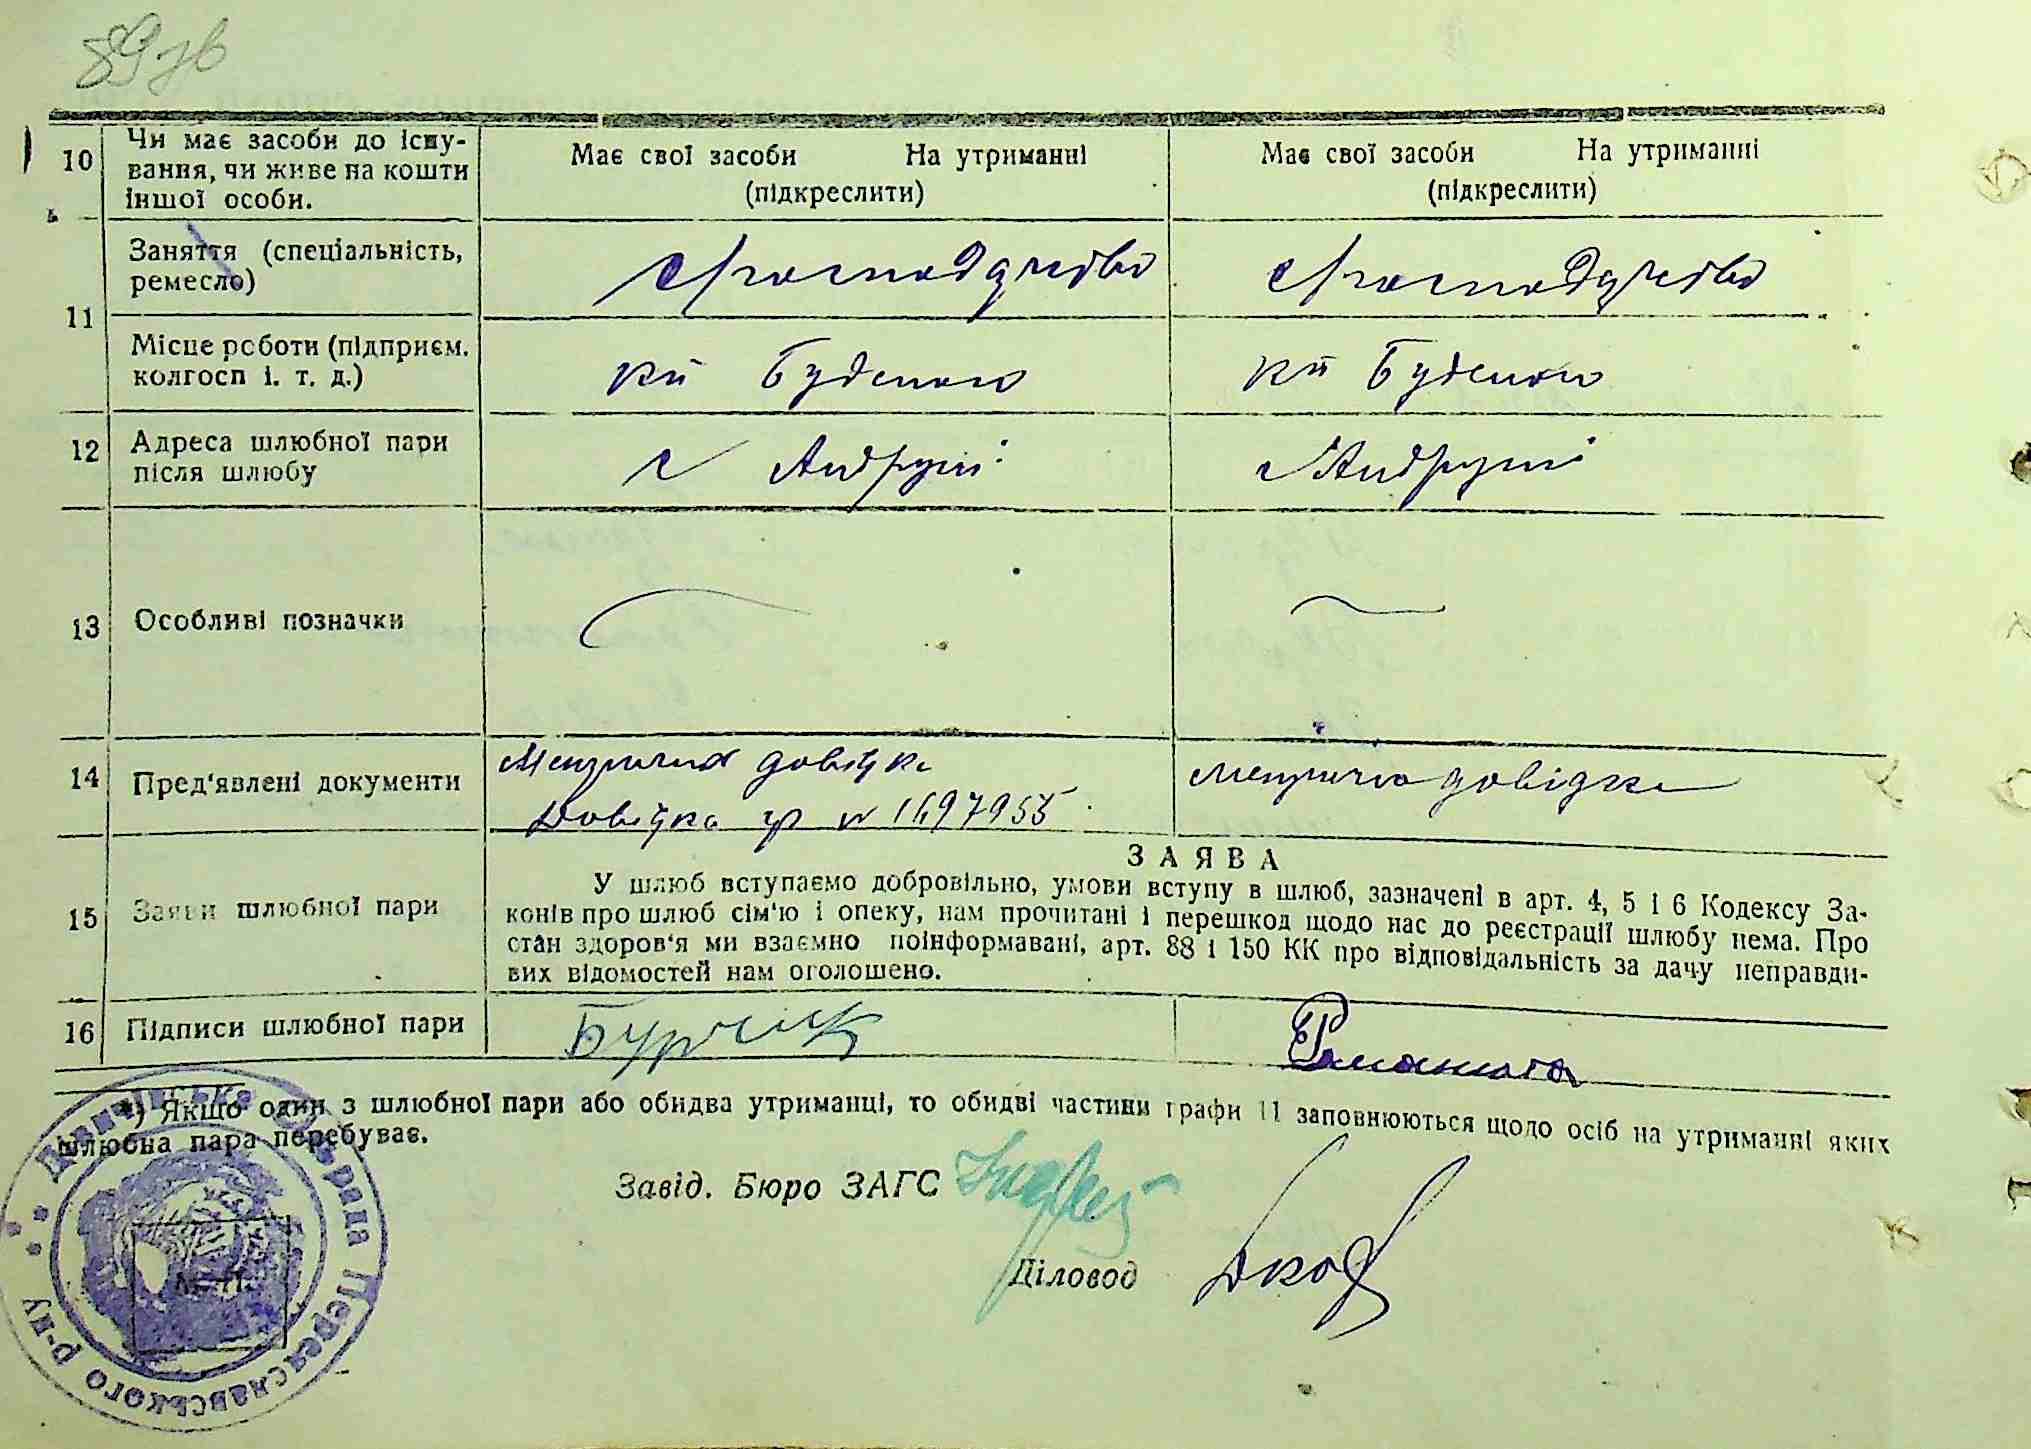 89зв
10 Чи має засоби до існу-
вання, чи живе на кошти
іншої особи.
Має свої засоби На утриманні
(підкреслити)
Має свої засоби На утриманні
(підкреслити)
11
Заняття (спеціальність,
ремесло)
Місце роботи (підприєм.
колгосп і. т. д.)
кп Буденого
кп Буденого
12 Адреса шлюбної пари
після шлюбу
с Андруші
с Андруші
13 Особливі позначки
14 Пред'явлені документи
довідка
Довідка № 1697955
довідка
15 Заяви шлюбної пари
ЗАЯВА
У шлюб вступаємо добровільно, умови вступу в шлюб, зазначені в арт. 4, 5 і 6 Кодексу За-
конів про шлюб сім'ю і опеку, нам прочитані і перешкод щодо нас до реєстрації шлюбу нема. Про
стан здоров'я ми взаємно поінформавані, арт. 88 і 150 КК про відповідальність за дачу неправди-
вих відомостей нам оголошено.
16 Підписи шлюбної пари
*) Якщо один з шлюбної пари або обидва утриманці, то обидві частини графи 11 заповнюються щодо осіб на утриманні яких
шлюбна пара перебуває.
Завід. Бюро ЗАГС
Діловод
М. П.
Переяславського р-ну